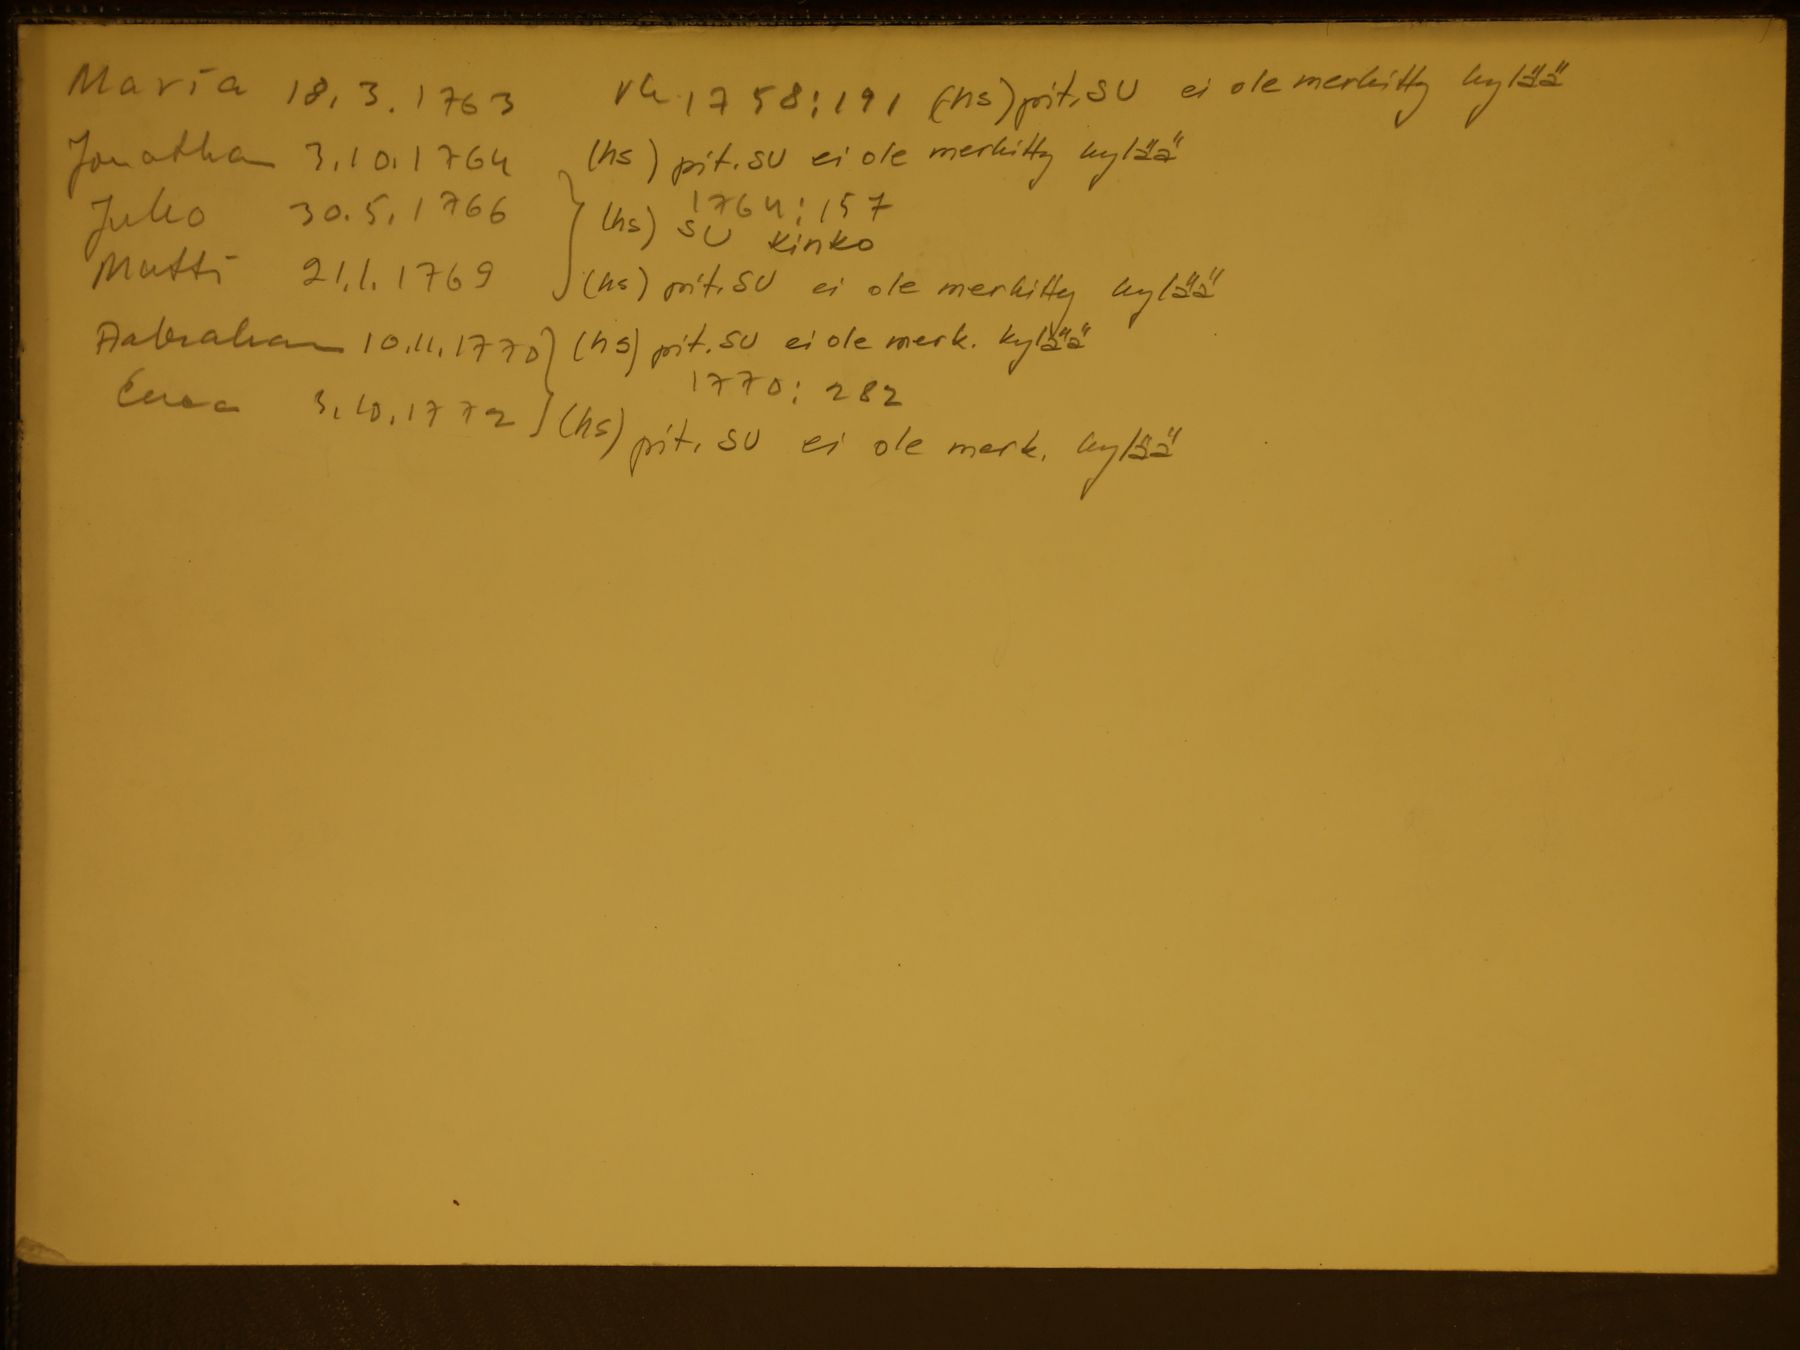 Maria 18.3.1763 rk. 1758:191 (hs) pit. SU ei ole merkitty kylää
Jonathan 3.10.1764 (hs) pit. SU ei ole merkitty kylää
Juho 30.5.1766 } 1764:157
(hs) SU Kinko
Matti 21.1.1769 (hs) pit. SU ei ole merkitty kylää
Aabraham 10.11.1770 } (hs) pit. SU ei ole merk. kylää
1770:282
3.10.1772 (hs) pit. SU ei ole merk. kylää